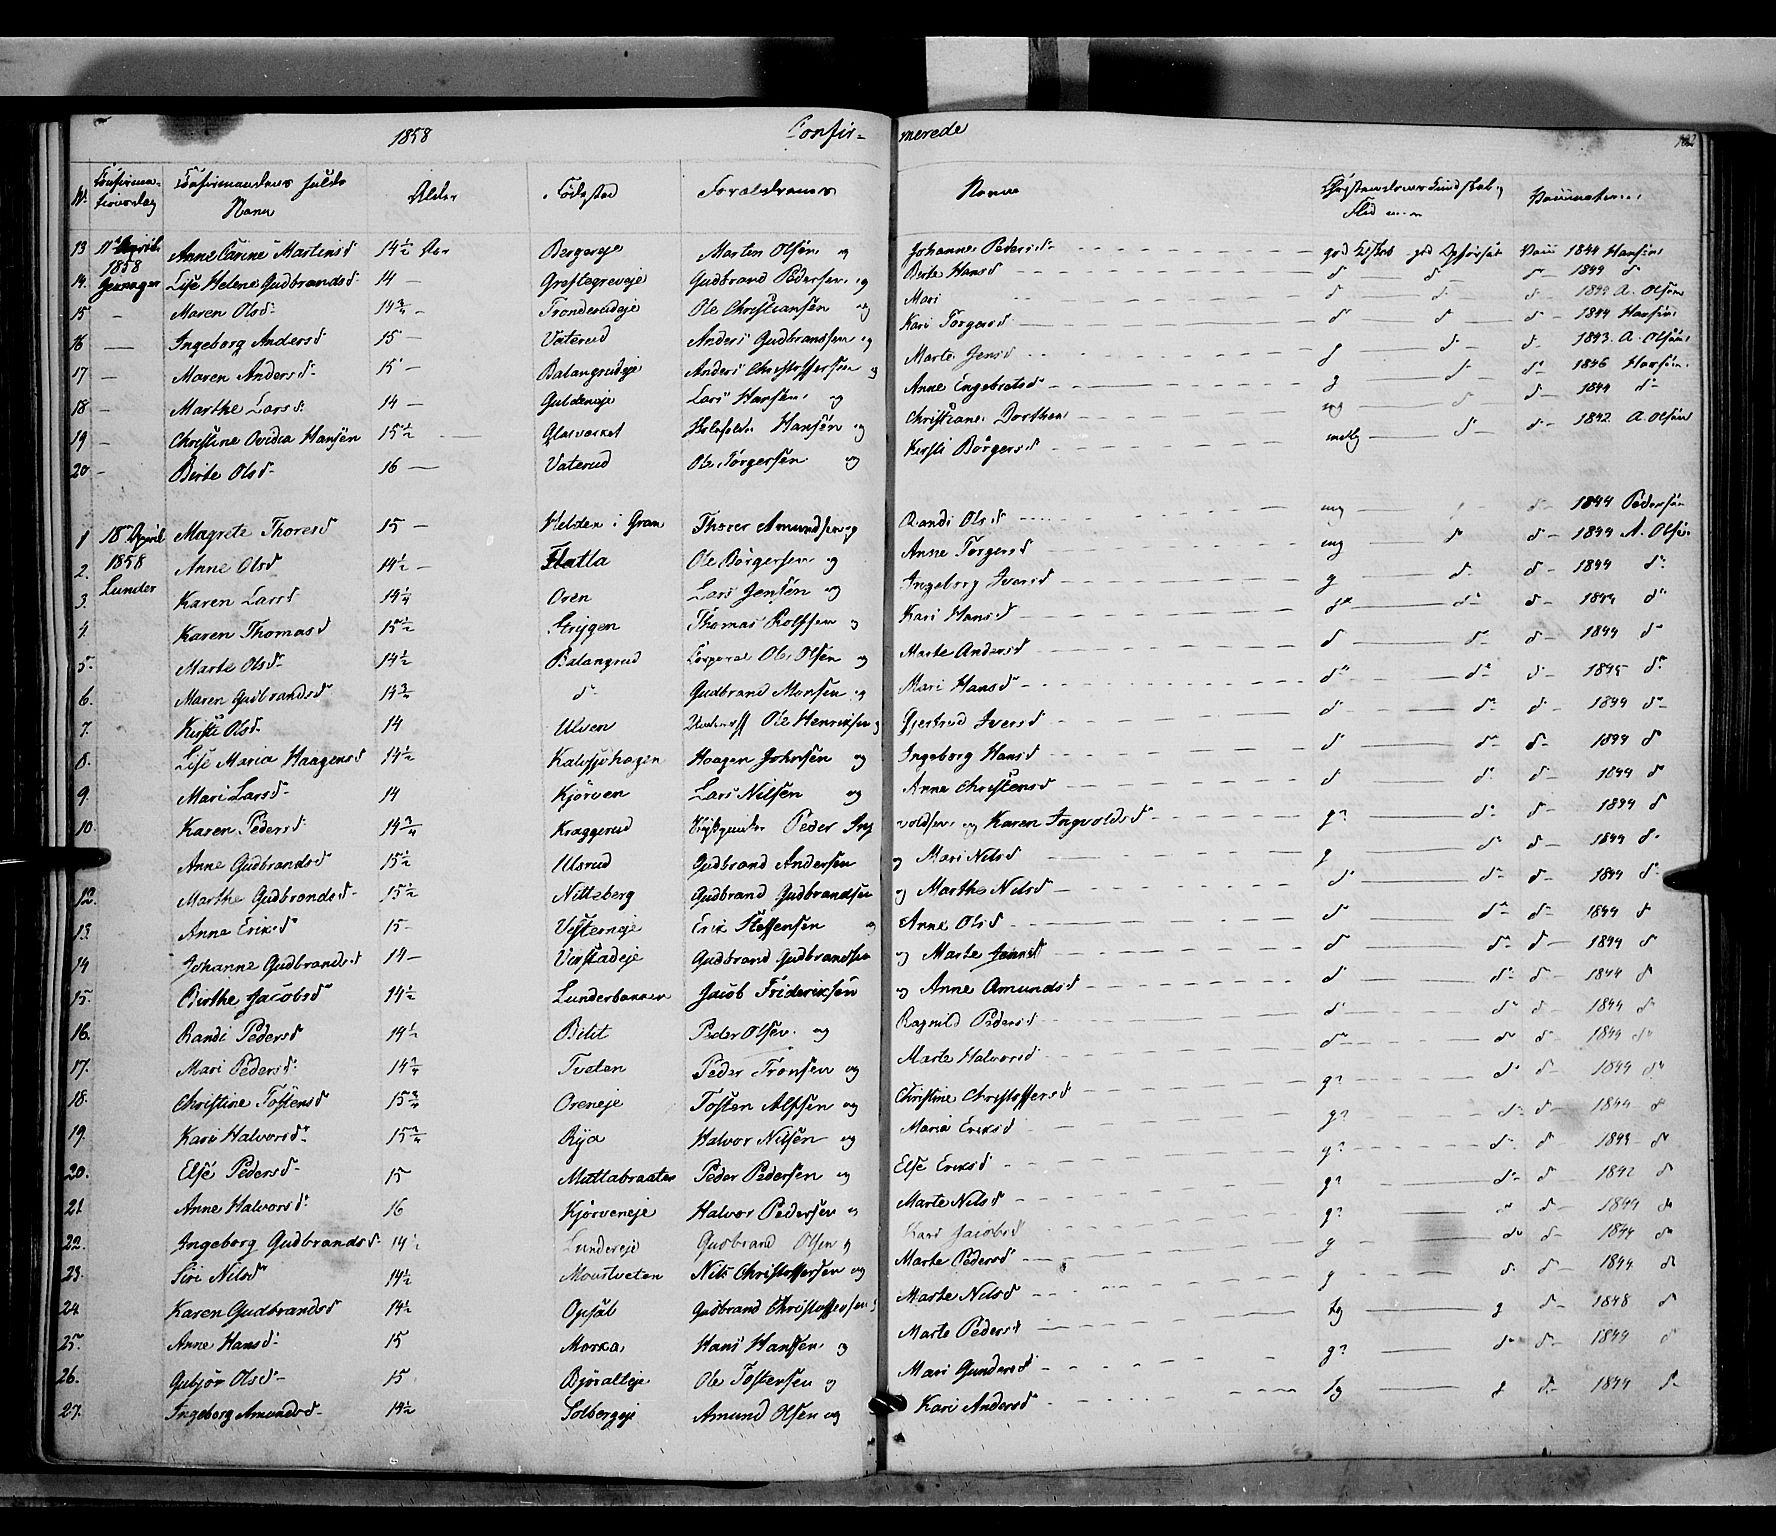 1858 Confir- merede 102
No. Confirma- tionsdag Confirmandens fulde Navn Alder Fødested Forældrenes Navne
13 11te April 1858 Anne Carine Martinsd 14½ Aar Bergereje Morten Olsen og Johanne Pedersd god Vacc 1844 Hansen
14. Lise Helene Gudbrandsd. 14 — Gudbrand Pedersen og Berte Hansd d d d 1844 d
15 — Maren Olsd. 14¾ — Tronderudeje Ole Christiansen og Mari d d d 1844 A. Olsen
16 — Ingeborg Andersd 15 — Vaterud Anders Gudbrandsen og Kari Torgersd d d d 1844 Hansen
17 — Maren Andersd. 15 — Balangrudeje Anders Christoffersen og Marte Jensd g d d 1843. A. Olsen
18 — Marthe Larsd. 14 — Guldeneje Lars Hansen og Anne Engebretsd g d d 1846 Hansen
19 — Christine Ovidia Hansen 15½ — Glasværket Hansen og Christiane Dorthea mg d d 1844 d
20 — Birte Olsd. 16 — Vaterud Ole Torgersen og Kirsti Börgersd d d 1842 A Olsen
1 18de April 1858 Lunder Magrete Thoresd 15 — i Gran Thorer Amundsen og Randi Olsd mg d 1844 Pedersen
2. Anne Olsd 14½ — Flatla Ole Börgersen og Anne Torgersd mg d d 1844 A. Olsen
3. Karen Larsd 14¼ Oren Lars Jensen og Ingeborg Iversd g d d 1844 d
4. Karen Thomasd 15½ Strygen Thomas Rolfsen og Kari Hansd d d d 1844 d
5. Marte Olsd. 14½ Balangrud Corporal Ole Olsen og Marte Andersd d d d 1844 d
6. Maren Gudbrandsd 14¾ d. Gudbrand Monsen og Mari Hansd d d d 1845 d
7. Kirsti Olsd. 14 Ulven Ole Henriksen og Gjertrud Iversd d d d 1844 d
8. Lise Maria Haagensd 14½ Kalvsjøhagen Haagen Johnsen og Ingeborg Hansd d d d 1844 d
9. Mari Larsd. 14 Kjörven Lars Nilsen og Anne Christensd d d d 1844 d
10. Karen Pedersd 14¾ Kraggerud Peder Ing voldsen og Karen Ingvoldsd g d d 1844 d
Anne Gudbrandsd 15½ Ulsrud Gudbrand Andersen og Mari Nilsd g d d 1844 d
12. Marthe Gudbrandsd. 15½ Nitteberg Gudbrand Gudbrandsen og Marthe Nilsd d d d 1844 d
13. Anne Eriksd 15 — Vesterneje Erik Steffensen og Anne Olsd d d d 1844 d
14 Johanne Gudbrandsd 14 — Virstadeje Gudbrand Gudbrandsen og Marte d d d 1844 d
15. Birthe Jacobsd 14½ Lunderbakken Jacob Frideriksen og Anne Amundsd d d d 1844 d
16. Randi Pedersd 14½ Bilit Peder Olsen og Ragnild Pedersd d d d 1844 d
17. Mari Pedersd. 14¾ Tveten Peder Tronsen og Marte Halvorsd d d d 1844 d
18. Christine Tostensd 15¾ Oreneje Tosten Alfsen og Christine Christoffersd g d d 1844 d
19. Kari Halvorsd. 15¾ Rya Halvor Nilsen og Maria Eriksd g d d 1844 d
20. Else Pedersd. 15 Muttabraaten Peder Pedersen og Else Eriksd g d d 1843 d
21 Anne Halvorsd. 16 Kjørveneje Halvor Pedersen og Marte Nilsd g d d 1842 d
22. Ingeborg Gudbrandsd. 14½ Lundereje Gudbrand Olsen og Kari Jacobsd g d d 1844 d
23. Siri Nilsd 14½ Moustveten Nils Christoffersen og Marte Pedersd g d d 1844 d
24. Karen Gudbrandsd 14½ Opsal Gudbrand Christoffersen og Marte Nilsd g d d 1844 d
25. Anne Hansd. 15 Morka Hans Hansen og Marte Pedersd tg g d 1848 d
26. Gubjør Olsd. 15 Ole Tostensen og Mari Gundersd g d d 1844 d
27. Ingeborg Amundsd. 14½ Solbergeje Amund Olsen og Kari Andersd tg g d 1844 d